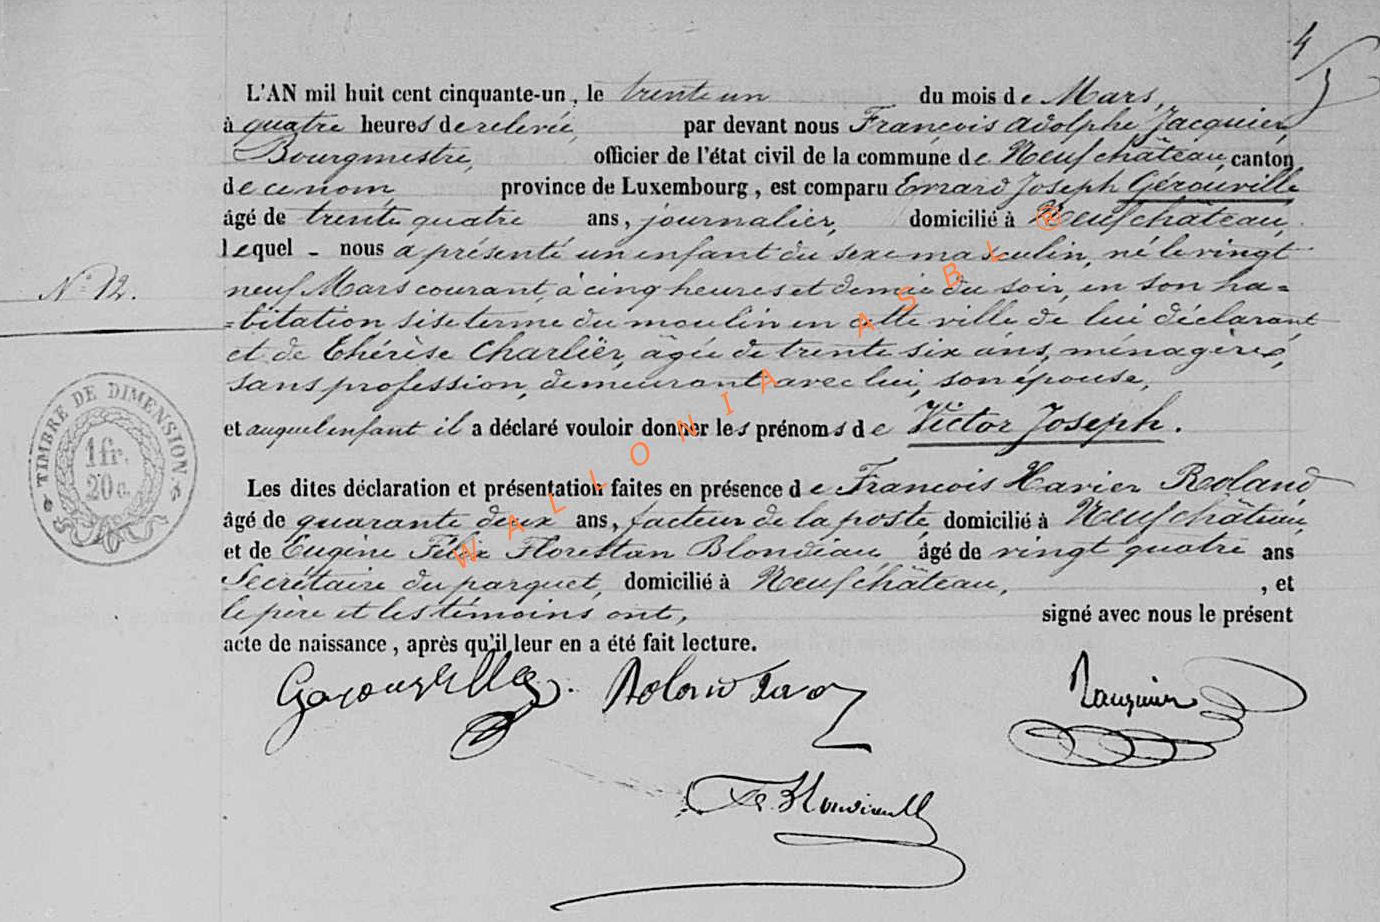 4
5
L'AN mil huit cent cinquante-un, le trente un du mois de Mars,
à quatre heures de relevée, par devant nous François Adolphe Jacquier,
Bourgmestre, officier de l'état civil de la commune de Neufchâteau, canton
de ce nom province de Luxembourg, est comparu Evrard Joseph Gérouville
âgé de trente quatre ans, journalier, domicilié à Neufchâteau,
lequel - nous a présenté un enfant du sexe masculin, né le vingt
N° 12.
neuf Mars courant, à cinq heures et demie du soir, en son ha=
=bitation sise terme du moulin en cette ville de lui déclarant
et de Thérèse Charlier, âgée de trente six ans, ménagère,
sans profession, demeurant avec lui, son épouse,
et auquel enfant il a déclaré vouloir donner les prénoms de Victor Joseph.
TIMBRE DE DIMENSION
1fr.
20c.
Les dites déclaration et présentation faites en présence de François Xavier Roland
âgé de quarante deux ans, facteur de la poste, domicilié à Neufchâteau,
et de Eugène Félix Florestan Blondiau âgé de vingt quatre ans
Secrétaire du parquet, domicilié à Neufchâteau, , et
le père et les témoins ont, signé avec nous le présent
acte de naissance, après qu'il leur en a été fait lecture.
Gerouville. Roland Jacquier
WALLONIA ASBL ®